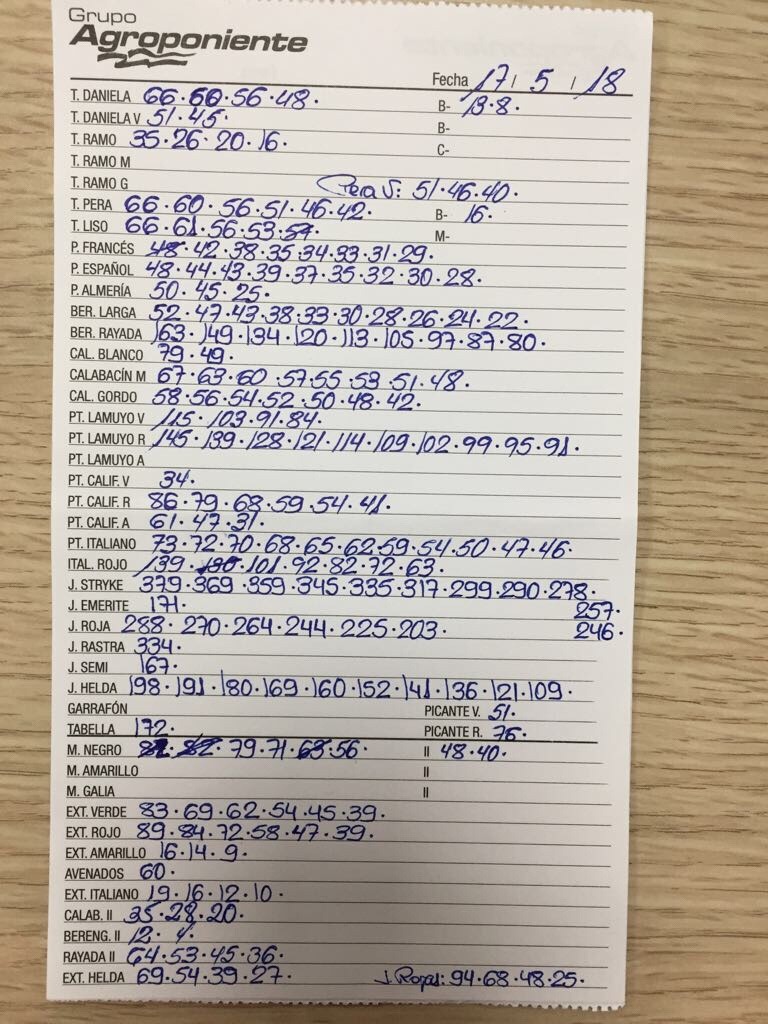 Grupo
Agroponiente
Fecha 17 / 5 / 18
T. DANIELA 66·60·56·48· B- 13·8·
T. DANIELA V 51·45· B-
T. RAMO 35·26·20·16· C-
T. RAMO M
T. RAMO G Pera V: 51·46·40·
T. PERA 66·60·56·51·46·42· B- 16·
T. LISO 66·61·56·53·57· M-
P. FRANCÉS 48·42·38·35·34·33·31·29·
P. ESPAÑOL 48·44·43·39·37·35·32·30·28·
P. ALMERÍA 50·45·25·
BER. LARGA 52·47·43·38·33·30·28·26·24·22·
BER. RAYADA 163·149·134·120·113·105·97·87·80·
CAL. BLANCO 79·49·
CALABACÍN M 67·63·60·57·55·53·51·48·
CAL. GORDO 58·56·54·52·50·48·42·
PT. LAMUYO V 115·103·91·84·
PT. LAMUYO R 145·139·128·121·114·109·102·99·95·91·
PT. LAMUYO A
PT. CALIF. V 34·
PT. CALIF. R 86·79·68·59·54·41·
PT. CALIF. A 61·47·31·
PT. ITALIANO 73·72·70·68·65·62·59·54·50·47·46·
ITAL. ROJO 139· 101·92·82·72·63·
J. STRYKE 379·369·359·345·335·317·299·290·278·
J. EMERITE 171· 257·
J. ROJA 288·270·264·244·225·203· 246·
J. RASTRA 334·
J. SEMI 167·
J. HELDA 198·191·180·169·160·152·141·136·121·109·
GARRAFÓN PICANTE V. 51·
TABELLA 172· PICANTE R. 76·
M. NEGRO 79·71·63·56· II 48·40·
M. AMARILLO II
M. GALIA II
EXT. VERDE 83·69·62·54·45·39·
EXT. ROJO 89·84·72·58·47·39·
EXT. AMARILLO 16·14·9·
AVENADOS 60·
EXT. ITALIANO 19·16·12·10·
CALAB. II 35·28·20·
BERENG. II 12·4·
RAYADA II 64·53·45·36·
EXT. HELDA 69·54·39·27· J. Rojas: 94·68·48·25·